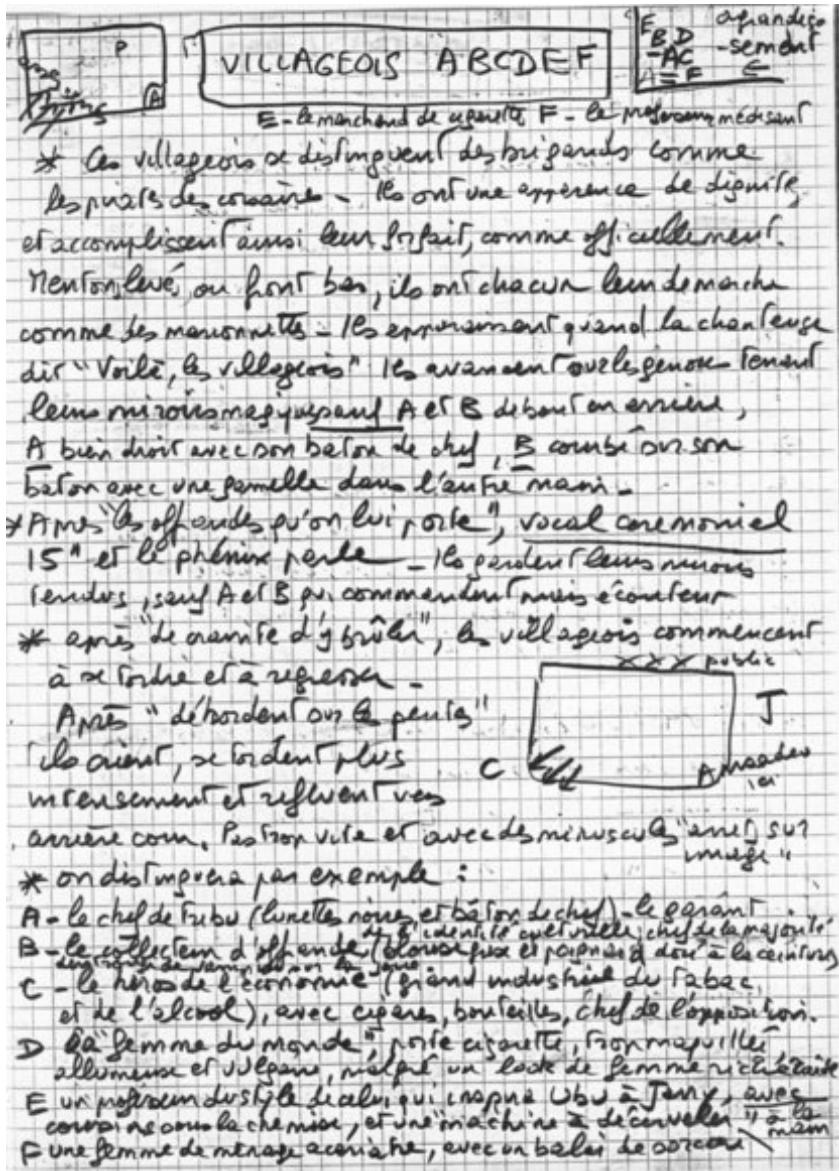 P
A
VILLAGEOIS ABCDEF
agrandis
-sement
E
B D
AC
A = F
E - le marchand de cigarette F - le professeur médisant
* Ces villageois se distinguent des brigands comme
les pirates des corsaires - Ils ont une apparence de dignité,
et accomplissent ainsi leur forfait, comme officiellement.
Menton levé, ou front bas, ils ont chacun leur demarche
comme des marionnettes - Ils apparaissent quand la chanteuse
dit "Voilà, les villageois" Ils avancent sur les genoux tenant
leurs miroirs magiques sauf A et B debout en arrière,
A bien droit avec son baton de chef, B courbé sur son
baton avec une gamelle dans l'autre main -
* Apres "les offrandes qu'on lui porte", vocal ceremoniel
15" et le phénix parle - Ils gardent leurs miroirs
tendus, sauf A et B qui commandent mais écoutent
* après "de crainte d'y brûler", les villageois commencent
à se tordre et à regresser -
XXX public
Après "débordent sur les pentes"
J
ils crient, se tordent plus
C
Amadeo
ici
intensement et refluent vers
arrière cour. Pas trop vite et avec des minuscules "arrêt sur
image"
* on distinguera par exemple :
A - le chef de tribu (lunettes noires et bâton de chef) - le garant
de l'identité culturelle, chef de la majorité
B - le collecteur d'offrande (blouse grise et poignard doré à la ceinture)
C - le héros de l'économie (grand industriel du tabac
et de l'alcool), avec cigares, bouteilles, chef de l'opposition.
D La "femme du monde", porte cigarette, trop maquillée
allumeuse et vulgaire, malgré un look de femme
E un professeur du style de celui qui inspira Ubu à Jarry, avec
coussins sous la chemise, et une "machine à décerveler" à la
main
F une femme de ménage acariatre, avec un balai de sorcière